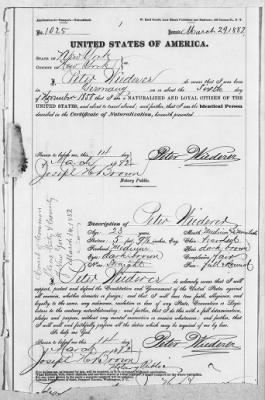 No. 1025 March 29, 1882
UNITED STATES OF AMERICA.
STATE OF New York
COUNTY OF New York
I, Peter Wiederer do swear that I was born
in Germany on or about the
of November 1858 that I am a NATURALIZED AND LOYAL CITIZEN OF THE
UNITED STATES, and about to travel abroad; and further, that I am the Identical Person
described in the Certificate of Naturalization, herewith presented.
Sworn to before me, this 14
day of March 1882
Joseph H. Brown
Notary Public
Peter Wiederer
Description of Peter Wiederer
Age: 23 years
Stature: 5 feet inches, Eng.
Forehead: Medium
Eyes: dark brown
Nose: Straight
Mouth: Medium
Chin:
Hair: dark brown
Complexion: Fair
Face: full
I, Peter Wiederer do solemnly swear that I will
support, protect and defend the Constitution and Government of the United States against
all enemies, whether domestic or foreign; and that I will bear true faith, allegiance, and
loyalty to the same, any ordinance, resolution or law of any State, Convention or Legis-
lature to the contrary notwithstanding; and further, that I do this with a full determination,
pledge and purpose, without any mental reservation or evasion whatsoever; and further, that
I will well and faithfully perform all the duties which may be required of me by law.
So help me God.
Sworn to before me, this 14
day of March 1882
Joseph H. Brown
Notary Public
Peter Wiederer